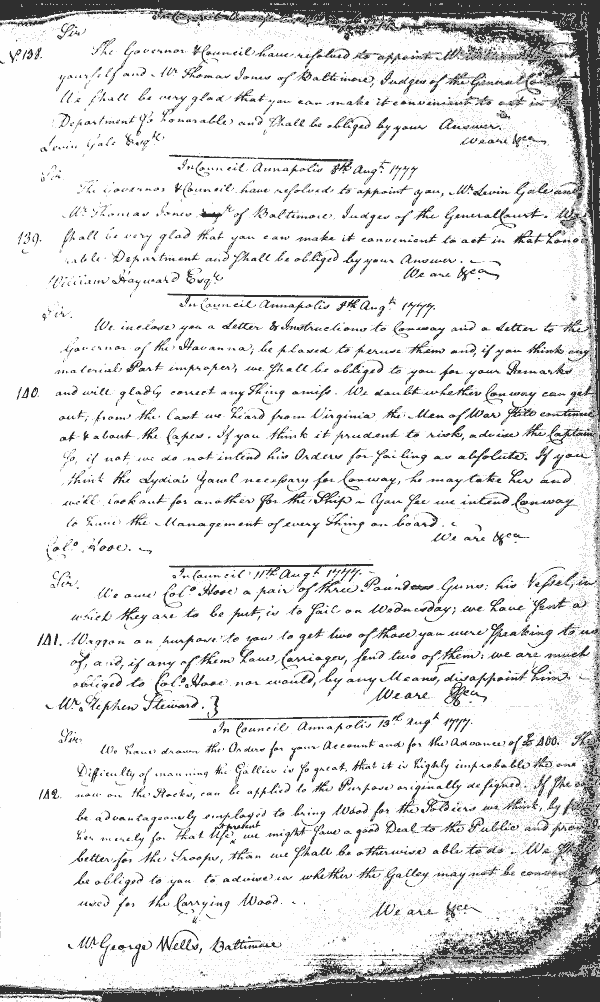 Sir
No 138. The Governor & Council have resolved to appoint Mr. William
yourself and Mr Thomas Jones of Baltimore, Judges of the General
We shall be very glad that you can make it convenient to act in
Department so honorable and shall be obliged by your Answer.
Levin Gale Esqr. We are &ca
In Council Annapolis 8th Augt 1777
Sir
The Governor & Council have resolved to appoint you, Mr. Levin Gale and
Mr Thomas Jones of Baltimore Judges of the General Court. We
139. shall be very glad that you can make it convenient to act in that hono
rable Department and shall be obliged by your Answer.
William Hayward Esqr. We are &ca
In Council Annapolis 8th Augt 1777.
Sir.
We inclose you a Letter & Instructions to Conway and a Letter to the
Governor of the Havanna; be pleased to peruse them and, if you think any
material Part improper, we shall be obliged to you for your Remarks
140. and will gladly correct any Thing amiss. We doubt whether Conway can get
out; from the last we heard from Virginia the Men of War still continue
at & about the Capes. If you think it prudent to risk, advise the Captain
so, if not we do not intend his Orders for sailing as absolute. If you
think the Lydia's Yawl necessary for Conway, he may take her and
we'll look out for another for the Ship. You see we intend Conway
to have the Management of every Thing on board.
We are &ca
Colo. Hooe.
In Council 11th Augt 1777.
Sir.
We owe Colo. Hooe a pair of three Pound Guns: his Vessel, in
which they are to be put, is to sail on Wednesday; we have sent a
141. Waggon on purpose to you to get two of those you were speaking to us
of, and, if any of them have Carriages, send two of them: we are much
obliged to Colo. Hooe nor would, by any Means, disappoint him.
Mr. Stephen Steward. } We are &ca
In Council Annapolis 13th Augt 1777.
Sir
We have drawn the Orders for your Account and for the Advance of £400. The
Difficulty of manning the Gallies is so great, that it is highly improbable the one
142. now on the Stocks, can be applied to the Purpose originally designed. If she
be advantageously employed to bring Wood for the Soldiers we think, by
her merely for that Use at present, we might save a good Deal to the Public and
better for the Troops, than we shall be otherwise able to do. We
be obliged to you to advise us whether the Galley may not be
used for the Carrying Wood.
We are &ca
Mr George Wells, Baltimore